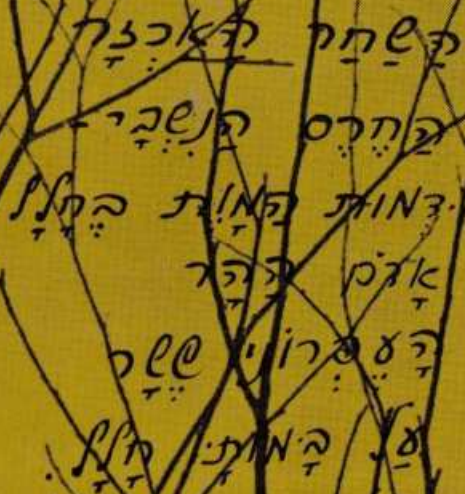 הַשַׁחַר הָאַכְזָר
הַחֶרֶס הַנִשְׁבָּר
דְמוּת הַמָוֶת בֶּחָלָל
אָדֹם הָהָר
הָעֶפְרוֹנִי שֶׁשָר
עַל בָּמוֹתַי חָלָל